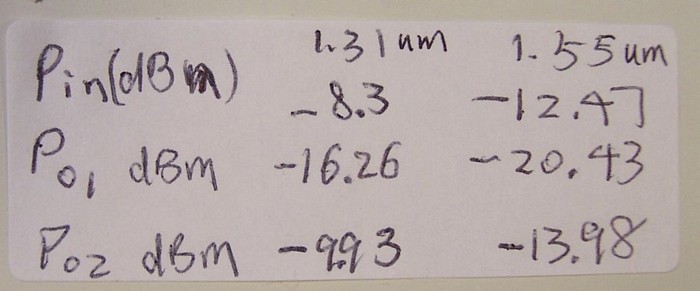 1.31um 1.55um
Pin(dBm) -8.3 -12.47
Po1 dBm -16.26 -20.43
Po2 dBm -9.93 -13.98